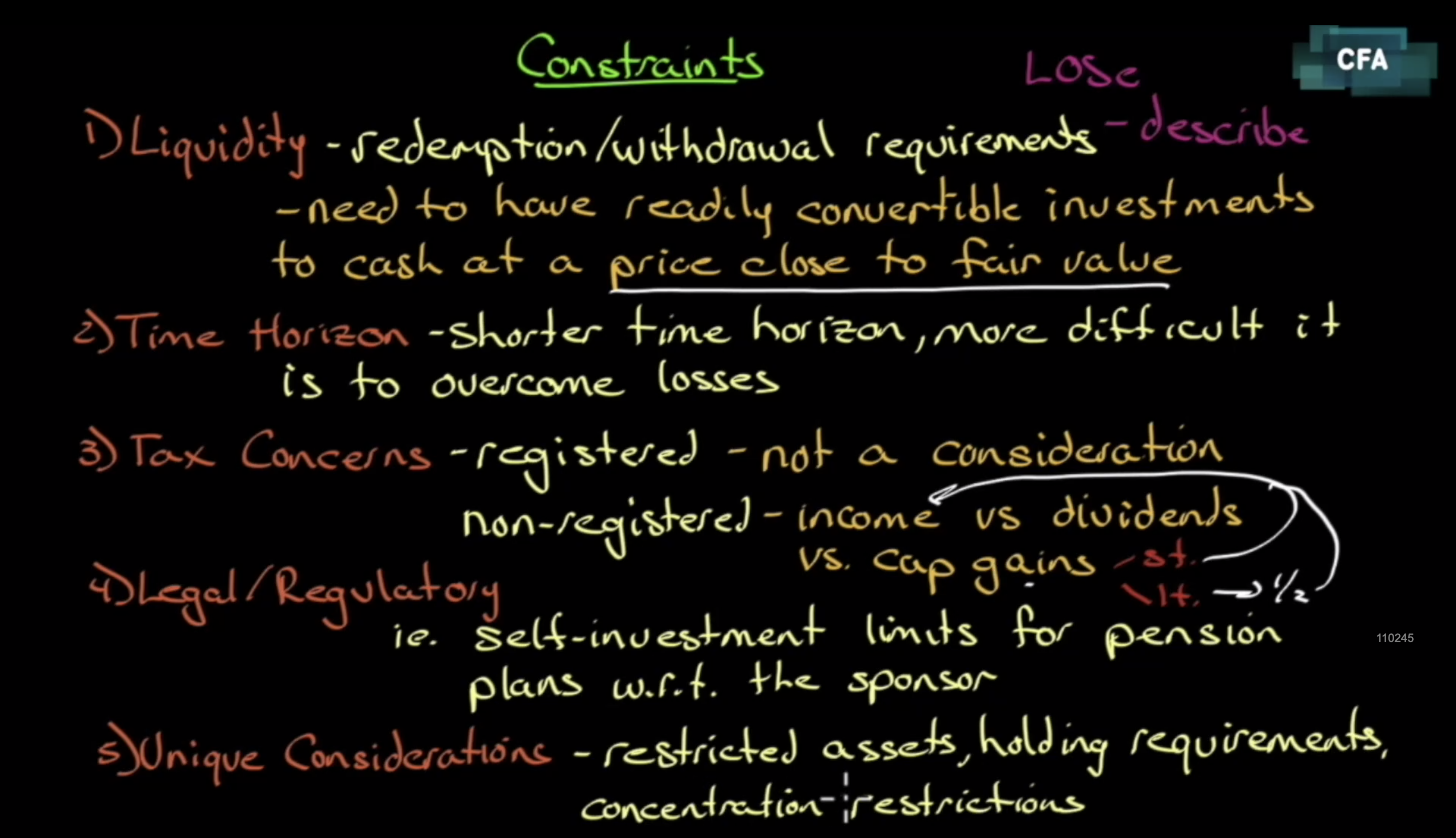 Constraints
LOSe
CFA
- describe
1) Liquidity - redemption/withdrawal requirements
- need to have readily convertible investments
to cash at a price close to fair value
2) Time Horizon - shorter time horizon, more difficult it
is to overcome losses
3) Tax Concerns - registered - not a consideration
non-registered - income vs dividends
vs. cap gains - st.
lt. → 1/2
4) Legal/Regulatory
ie. self-investment limits for pension
plans w.r.t. the sponsor
110245
5) Unique Considerations - restricted assets, holding requirements,
concentration - restrictions